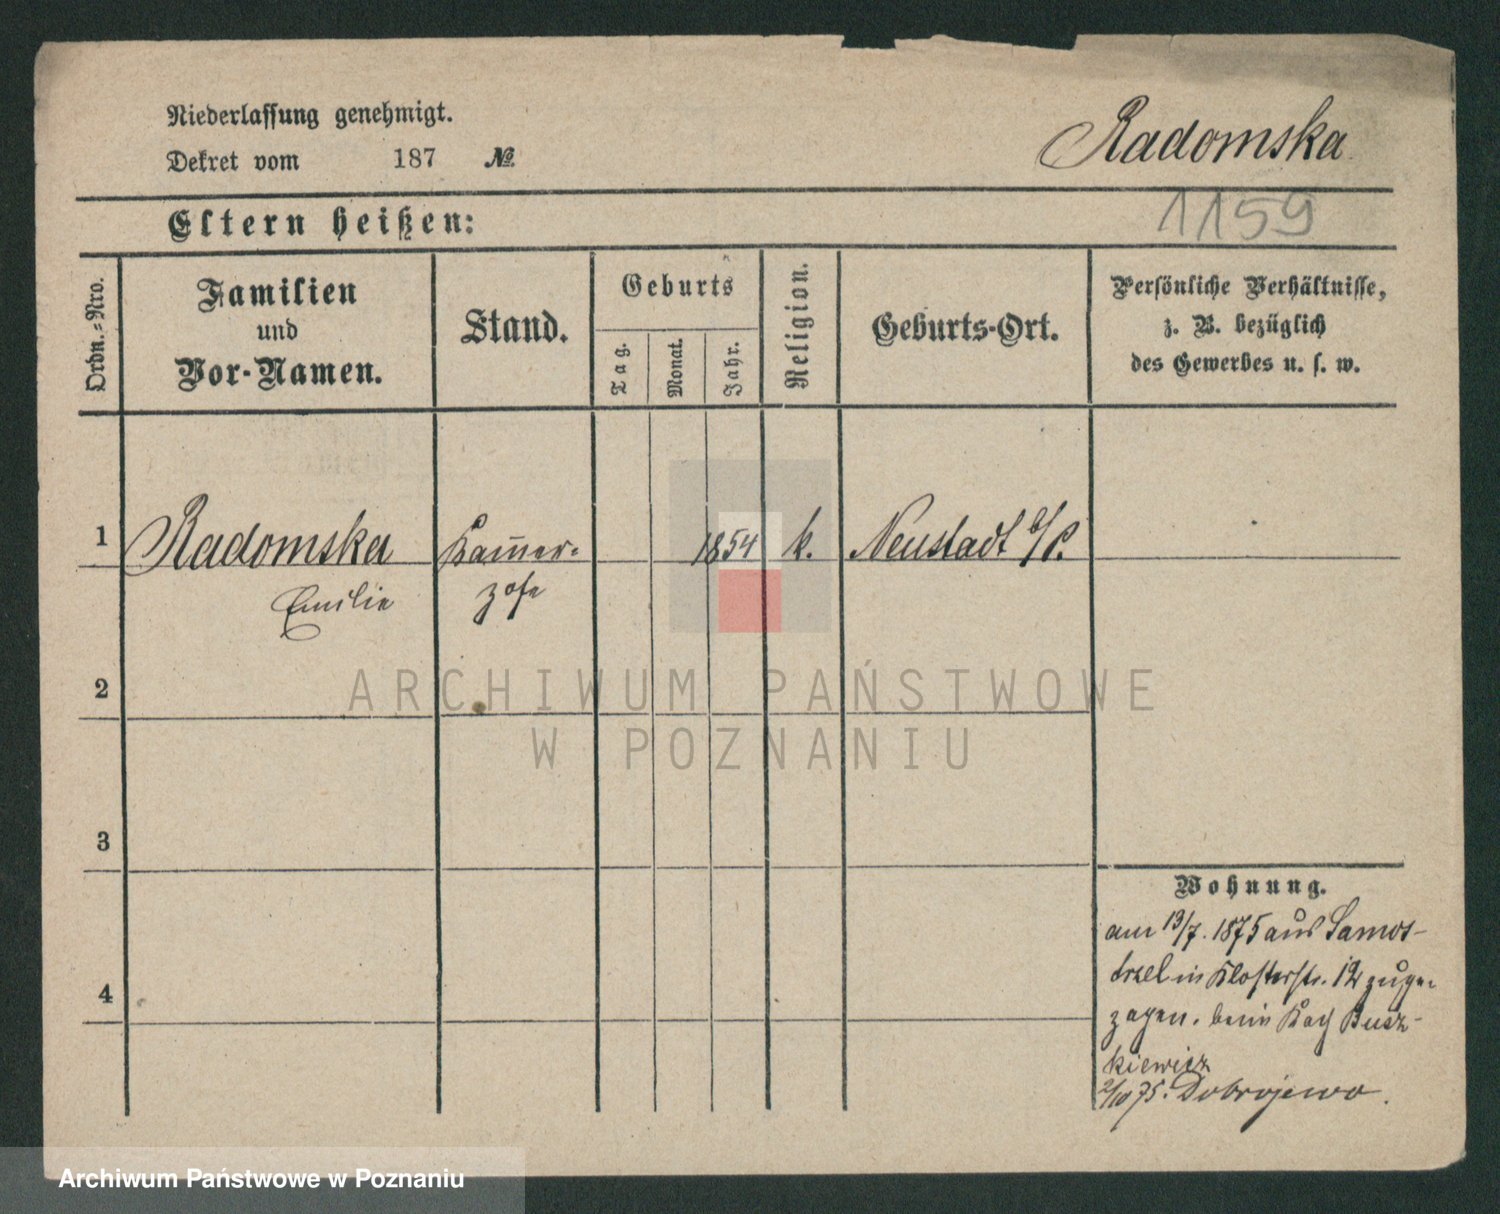 Niederlassung genehmigt.
Dekret vom 187 №
Radomska
1159
Eltern heißen:
Ordn.-Nro.
Familien
und
Vor-Namen.
Stand.
Geburts
Tag.
Monat.
Jahr.
Religion.
Geburts-Ort.
Persönliche Verhältnisse,
z. B. bezüglich
des Gewerbes u. s. w.
1 Radomska Kam̅er- 1854 k. Neustadt b/P.
Emilie zofe
2
ARCHIWUM PAŃSTWOWE
W POZNANIU
3
Wohnung.
am 13/7. 1875 aus Samos-
trzel in Klosterstr. 12 zuge-
zogen. beim Koch Busz-
kiewicz
2/10 75. Dobrojewo.
4
Archiwum Państwowe w Poznaniu